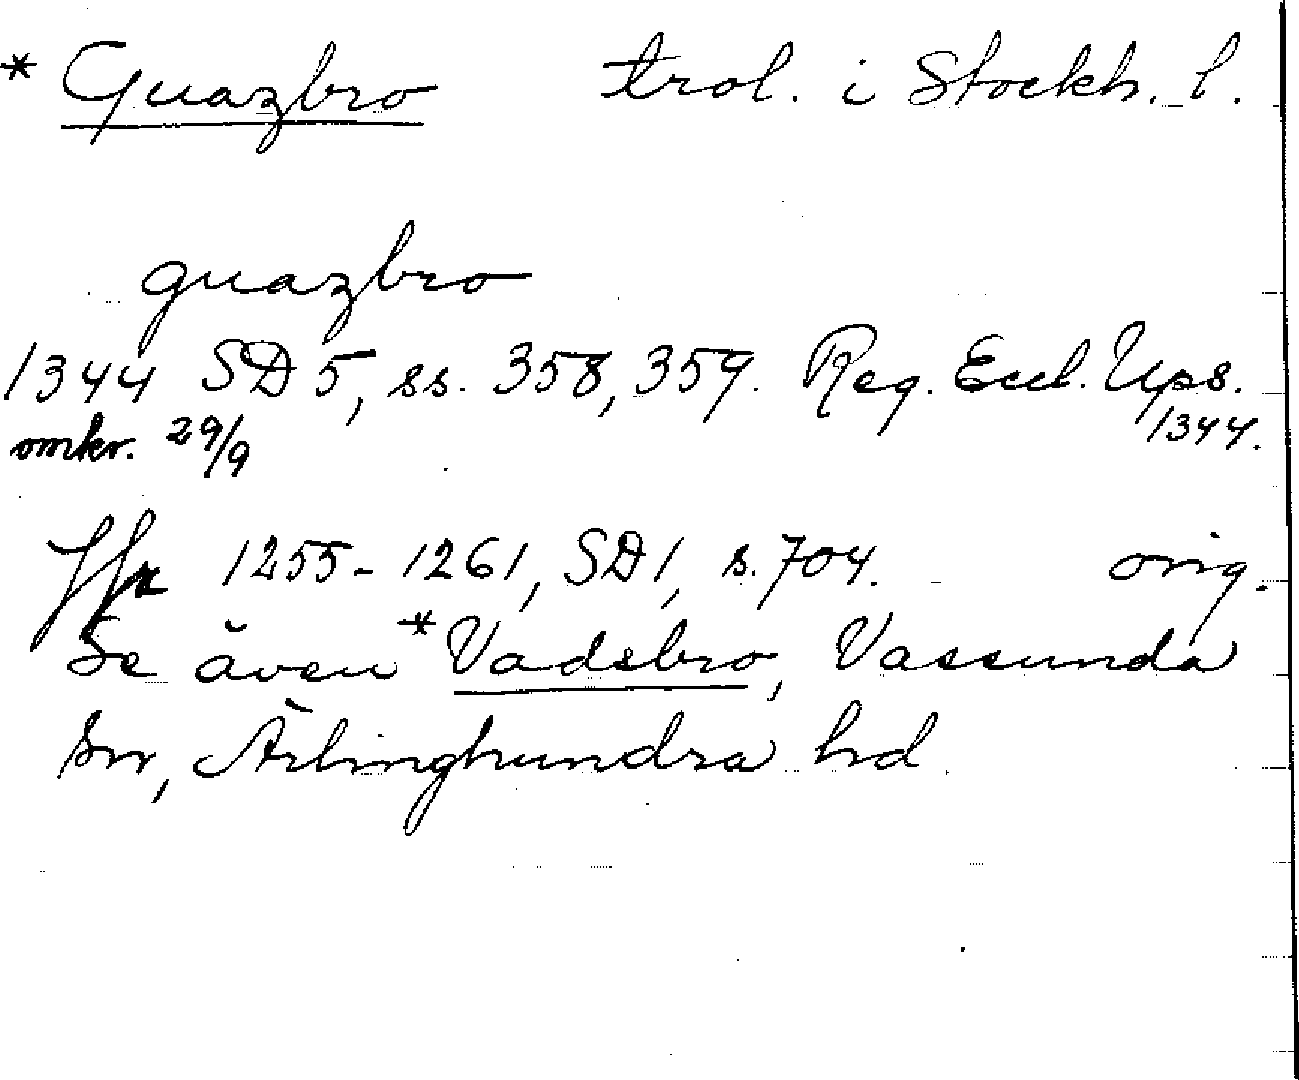 * Guazbro trol. i Stockh. l.
guazbro
1344 SD 5, ss. 358, 359. Reg. Eccl. Ups.
omkr. 29/9 1344.
Jfr 1255-1261, SD 1, s. 704. orig.
Se även *Vadsbro, Vassunda
sn, Ärlinghundra hd